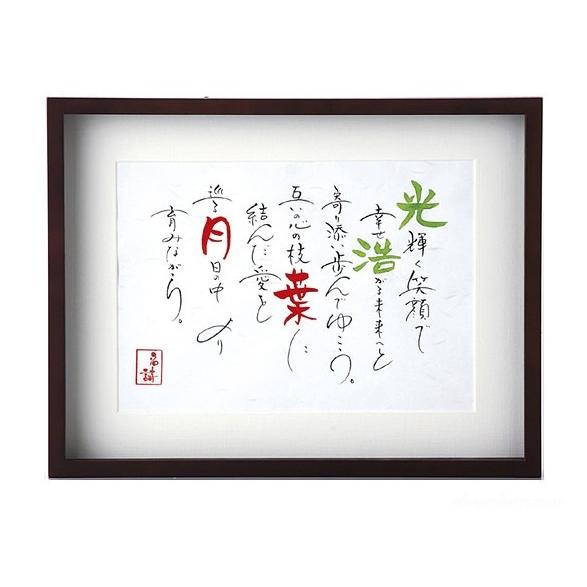 光輝く笑顔で
幸せ浩がる未来へと
寄り添い歩んでゆこう。
互いの心の枝葉に
結んだ愛を
巡る月日の中
育みながら。